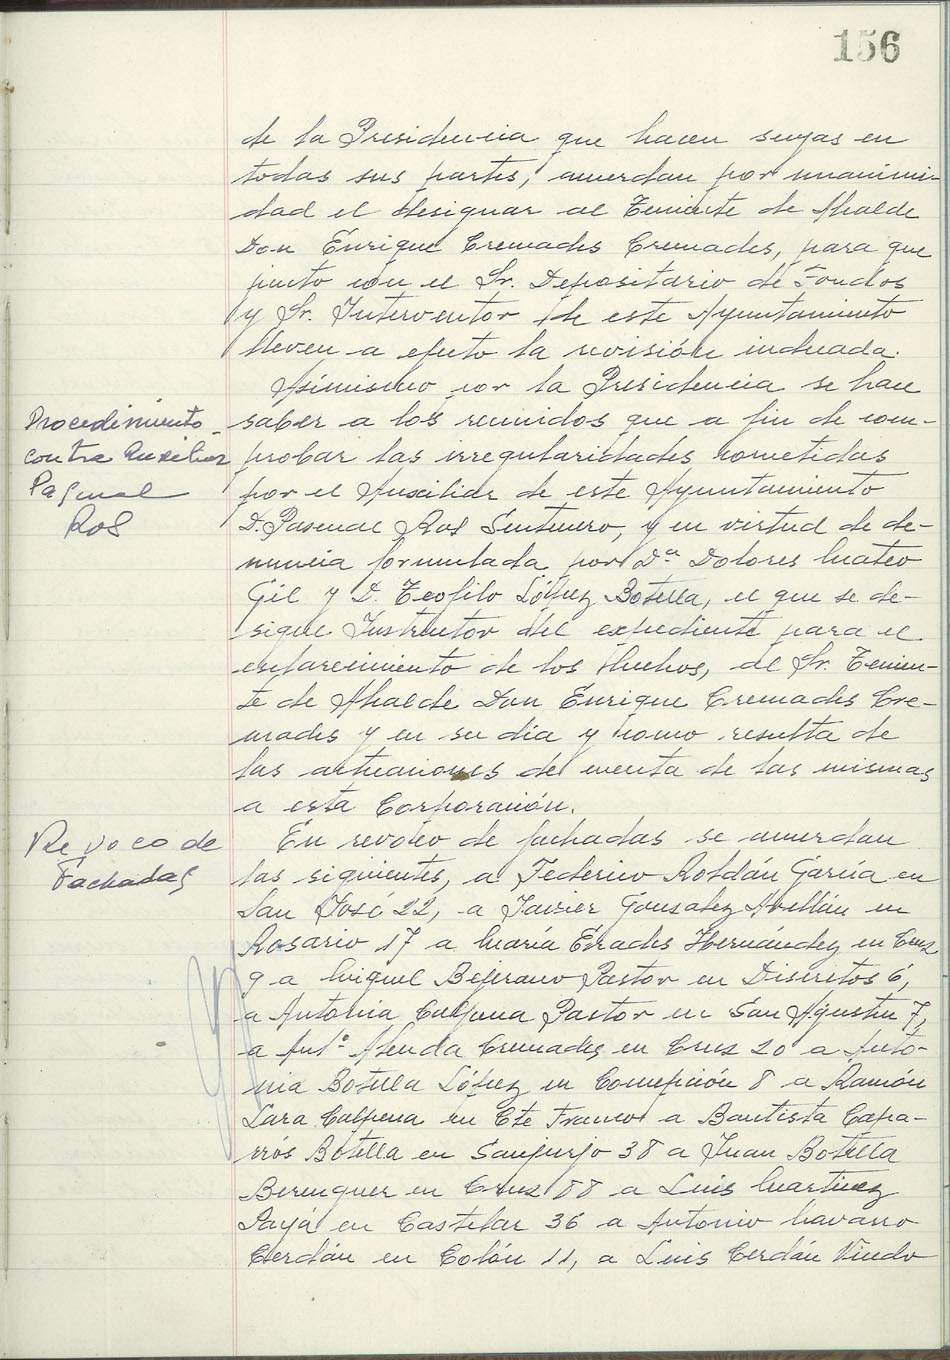 156
de la Presidencia que hacen suyas en
todas sus partes, acuerdan por unanimi-
dad el designar al Teniente de Alcalde
Don Enrique Cremades Cremades, para que
junto con el Sr. Depositario de Fondos
y Sr. Interventor de este Ayuntamiento
lleven a efecto la revisión indicada.
Asimismo por la Presidencia se hace
Procedimiento
contra Auxiliar
Pascual
Ros
saber a los reunidos que a fin de com-
probar las irregularidades cometidas
por el Auxiliar de este Ayuntamiento
D. Pascual Ros Sentenero, y en virtud de de-
nuncia formulada por Dª Dolores Mateo
Gil y D. Teofilo López Botella, el que se de-
signe Instructor del expediente para el
esclarecimiento de los hechos, al Sr. Tenien-
te de Alcalde Don Enrique Cremades Cre-
mades y en su dia y como resulta de
las actuaciones de cuenta de las mismas
a esta Corporación.
Revoco de
Fachadas
En revoco de fachadas se acuerdan
las siguientes, a Federico Roldán Garcia en
San José 22, a Javier Gonzalez Abellán en
Rosario 17 a María Erades Hernández en Cruz
9 a Miguel Bejerano Pastor en Discretos 6,
a Antonia Calpena Pastor en San Agustin 7,
a Antº Alenda Cremades en Cruz 20 a Anto-
nia Botella López en Concepción 8 a Ramón
Lara Calpena en Cte Franco a Bautista Capa-
rrós Botella en Sanjurjo 38 a Juan Botella
Berenguer en Cruz 88 a Luis Martinez
Payá en Castelar 36 a Antonio Navarro
Cerdán en Colón 11, a Luis Cerdán Viudo